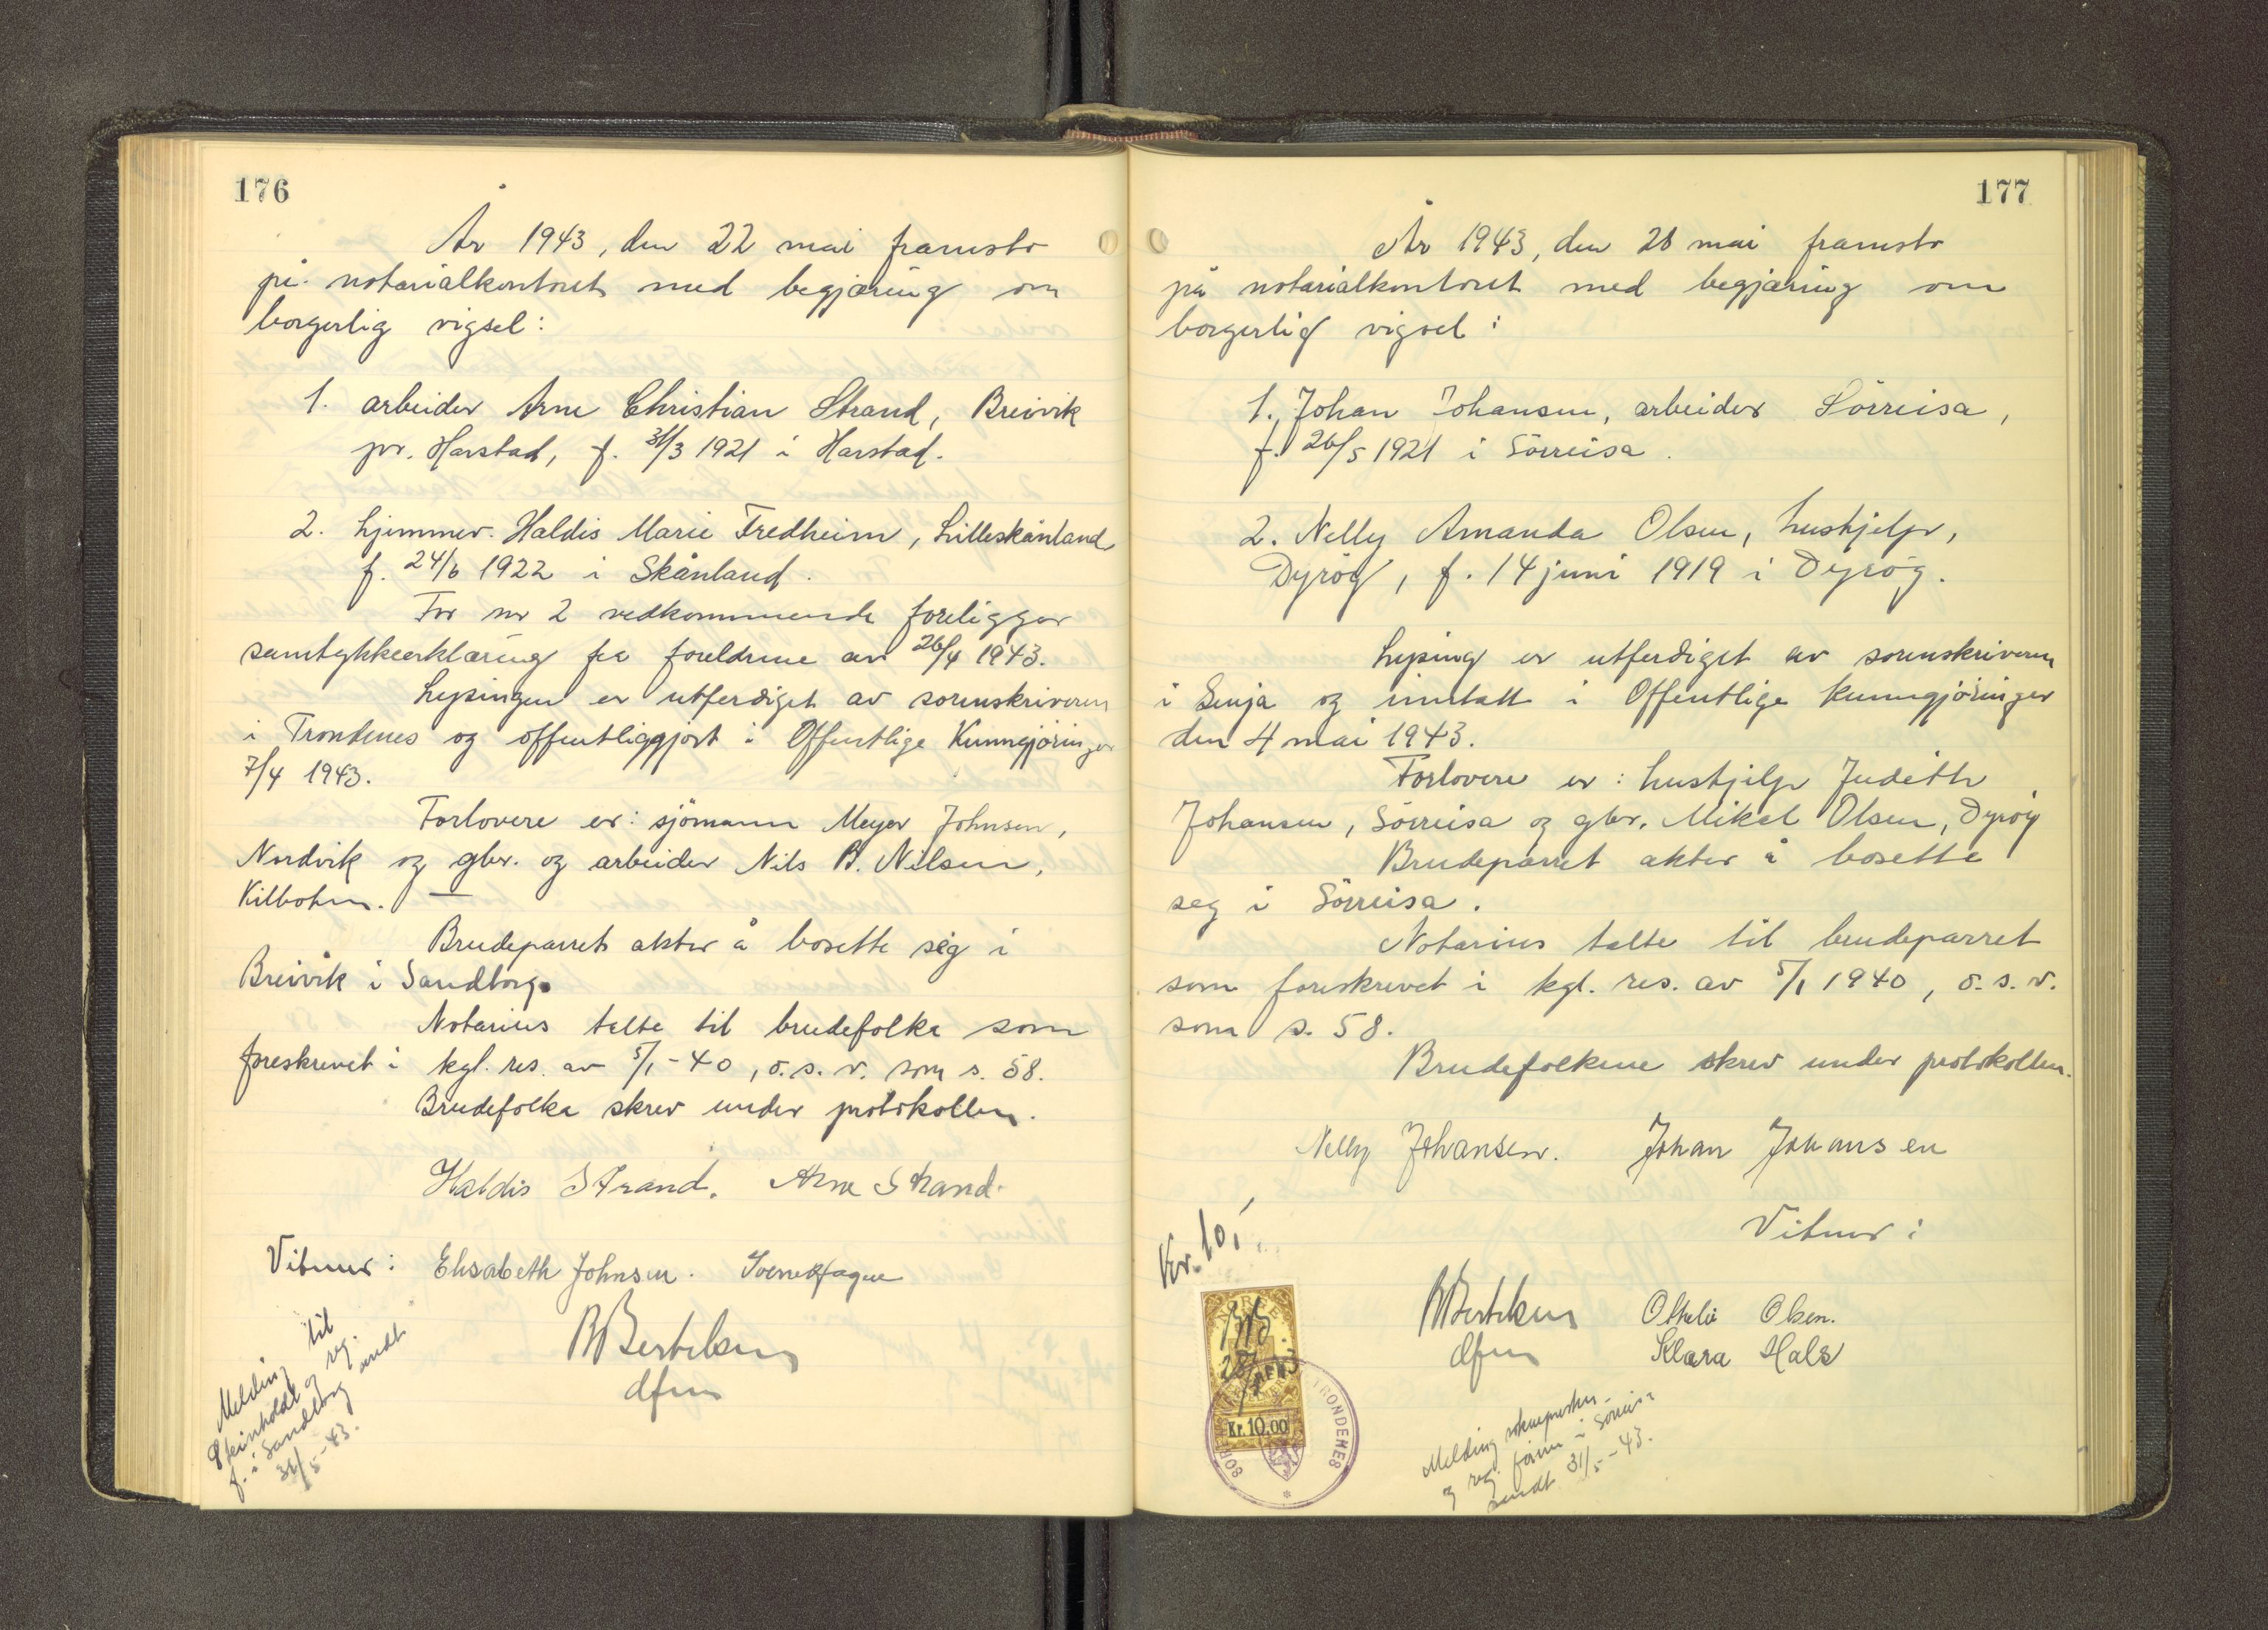 176
År 1943, den 22 mai framsto
på notarialkontoret med begjæring om
borgerlig vigsel:
1. arbeider Arne Christian Strand, Breivik
pr. Harstad, f. 31/3 1921 i Harstad.
2. hjemmev. Haldis Marie Fredheim, Lilleskånland
f. 24/6 1922 i Skånland.
For nr 2 vedkommende foreligger
samtykkeerklæring fra foreldrene av 26/4 1943.
Lysingen er utferdiget av sorenskriveren
i Trondenes og offentliggjort i Offentlige Kunngjøringer
7/4 1943.
Forlovere er: sjømann Meyer Johnsen,
Nordvik og gbr. og arbeider Nils B. Nilsen,
Kilbotn. —
Brudeparret akter å bosette seg i
Breivik i Sandtorg.
Notarius talte til brudefolka som
foreskrevet i kgl. res. av 5/1-40, o.s.v. som s. 58.
Brudefolka skrev under protokollen.
Haldis Strand. Arne Strand.
Vitner: Elisabeth Johnsen.
B Bertelsen
dfm
Melding til
og reg.
f. i Sandtorg sendt
31/5-43.
177
År 1943, den 28 mai framsto
på notarialkontoret med begjæring om
borgerlig vigsel:
1. Johan Johansen, arbeider Sörreisa,
f. 26/5 1921 i Sörreisa.
2. Nelly Amanda Olsen, hushjelp,
Dyröy, f. 14 juni 1919 i Dyröy.
Lysing er utferdiget av sorenskriveren
i Senja og inntatt i Offentlige Kunngjöringer
den 4 mai 1943.
Forlovere er: hushjelp Judith
Johansen, Sörreisa og gbr. Mikal Olsen, Dyröy
Brudeparret akter å bosette
seg i Sörreisa.
Notarius talte til brudeparret
som foreskrevet i kgl. res. av 5/1 1940, o.s.v.
som s. 58.
Brudefolkene skrev under protokollen.
Nelly Johansen. Johan Johansen
Vitner:
Kr. 10,-
B Bertelsen Olsen.
dfm Klara Hals
NORGE
28/5
Kr. 10.00
TRONDENES
Melding sokneprestn.
og reg. förern i Sörreisa
sendt 31/5-43.